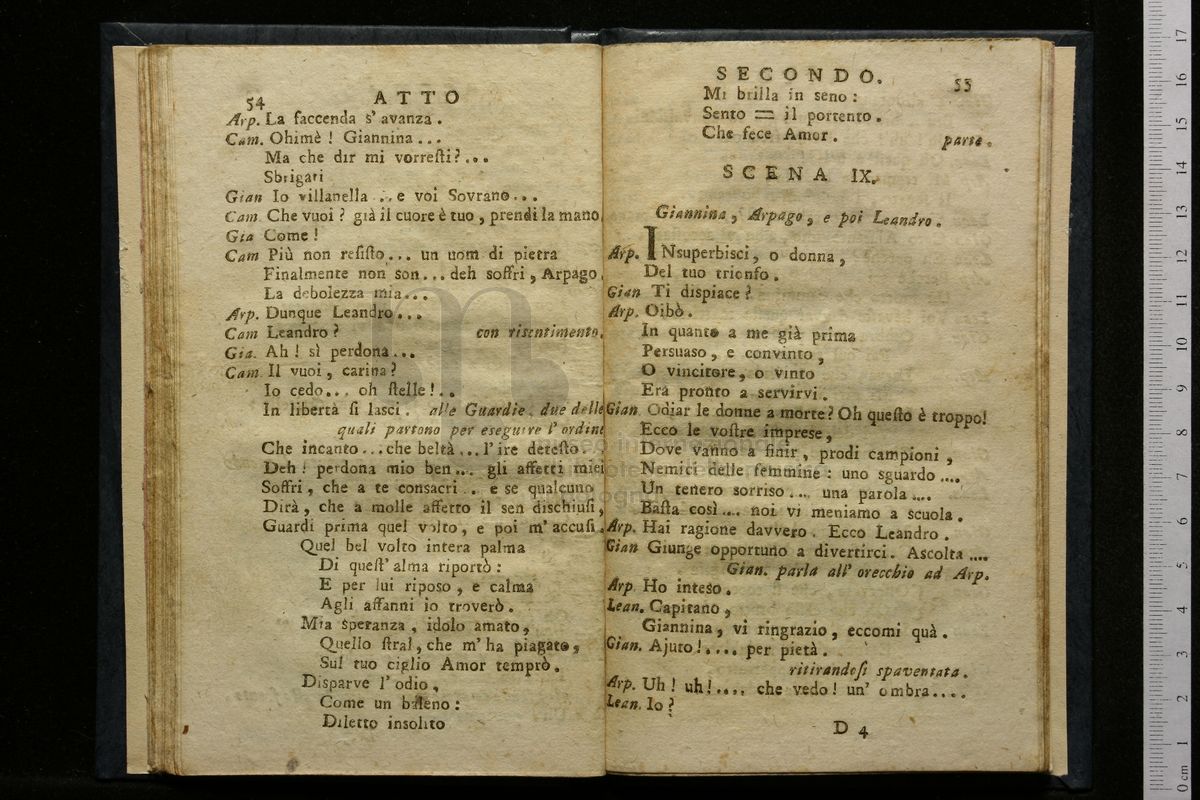 54 ATTO
Arp. La faccenda s' avanza.
Cam. Ohimè! Giannina...
Ma che dir mi vorresti?...
Sbrigati
Gian Io villanella ... e voi Sovrano...
Cam. Che vuoi? già il cuore è tuo, prendi la mano.
Gia Come!
Cam Più non resisto... un uom di pietra
Finalmente non son... deh soffri, Arpago,
La debolezza mia...
Arp. Dunque Leandro...
Cam Leandro? con risentimento.
Gia. Ah! sì perdona...
Cam. Il vuoi, carina?
Io cedo... oh stelle!..
In libertà si lasci. alle Guardie, due delle
quali partono per eseguire l' ordine
Che incanto...che beltà...l' ire detesto.
Deh! perdona mio ben... gli affetti miei
Soffri, che a te consacri.. e se qualcuno
Dirà, che a molle affetto il sen dischiusi,
Guardi prima quel volto, e poi m' accusi.
Quel bel volto intera palma
Di quest' alma riportò:
E per lui riposo, e calma
Agli affanni io troverò.
Mia speranza, idolo amato,
Quello stral, che m' ha piagato,
Sul tuo ciglio Amor temprò.
Disparve l' odio,
Come un baleno:
Diletto insolito
SECONDO. 55
Mi brilla in seno:
Sento = il portento.
Che fece Amor. parte.
SCENA IX.
Giannina, Arpago, e poi Leandro.
Arp. INsuperbisci, o donna,
Del tuo trionfo.
Gian Ti dispiace?
Arp. Oibò.
In quanto a me già prima
Persuaso, e convinto,
O vincitore, o vinto
Era pronto a servirvi.
Gian. Odiar le donne a morte? Oh questo è troppo!
Ecco le vostre imprese,
Dove vanno a finir, prodi campioni,
Nemici delle femmine: uno sguardo ....
Un tenero sorriso .... una parola ....
Basta così .... noi vi meniamo a scuola.
Arp. Hai ragione davvero. Ecco Leandro.
Gian Giunge opportuno a divertirci. Ascolta ....
Gian. parla all' orecchio ad Arp.
Arp Ho inteso.
Lean. Capitano,
Giannina, vi ringrazio, eccomi quà.
Gian. Ajuto!.... per pietà.
ritirandosi spaventata.
Arp. Uh! uh!.... che vedo! un' ombra....
Lean. Io?
D 4